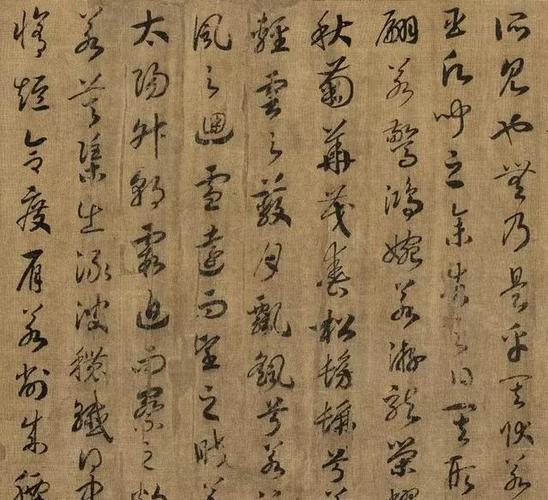 所見也無乃是乎其狀若
臣願聞之余告之曰其形
翩若驚鴻婉若遊龍榮曜
秋菊華茂春松髣髴兮若
輕雲之蔽月飄颻兮若
風之迴雪遠而望之皎若
太陽升朝霞迫而察之灼
若芙蕖出淥波穠纖得中
脩短合度肩若削成腰